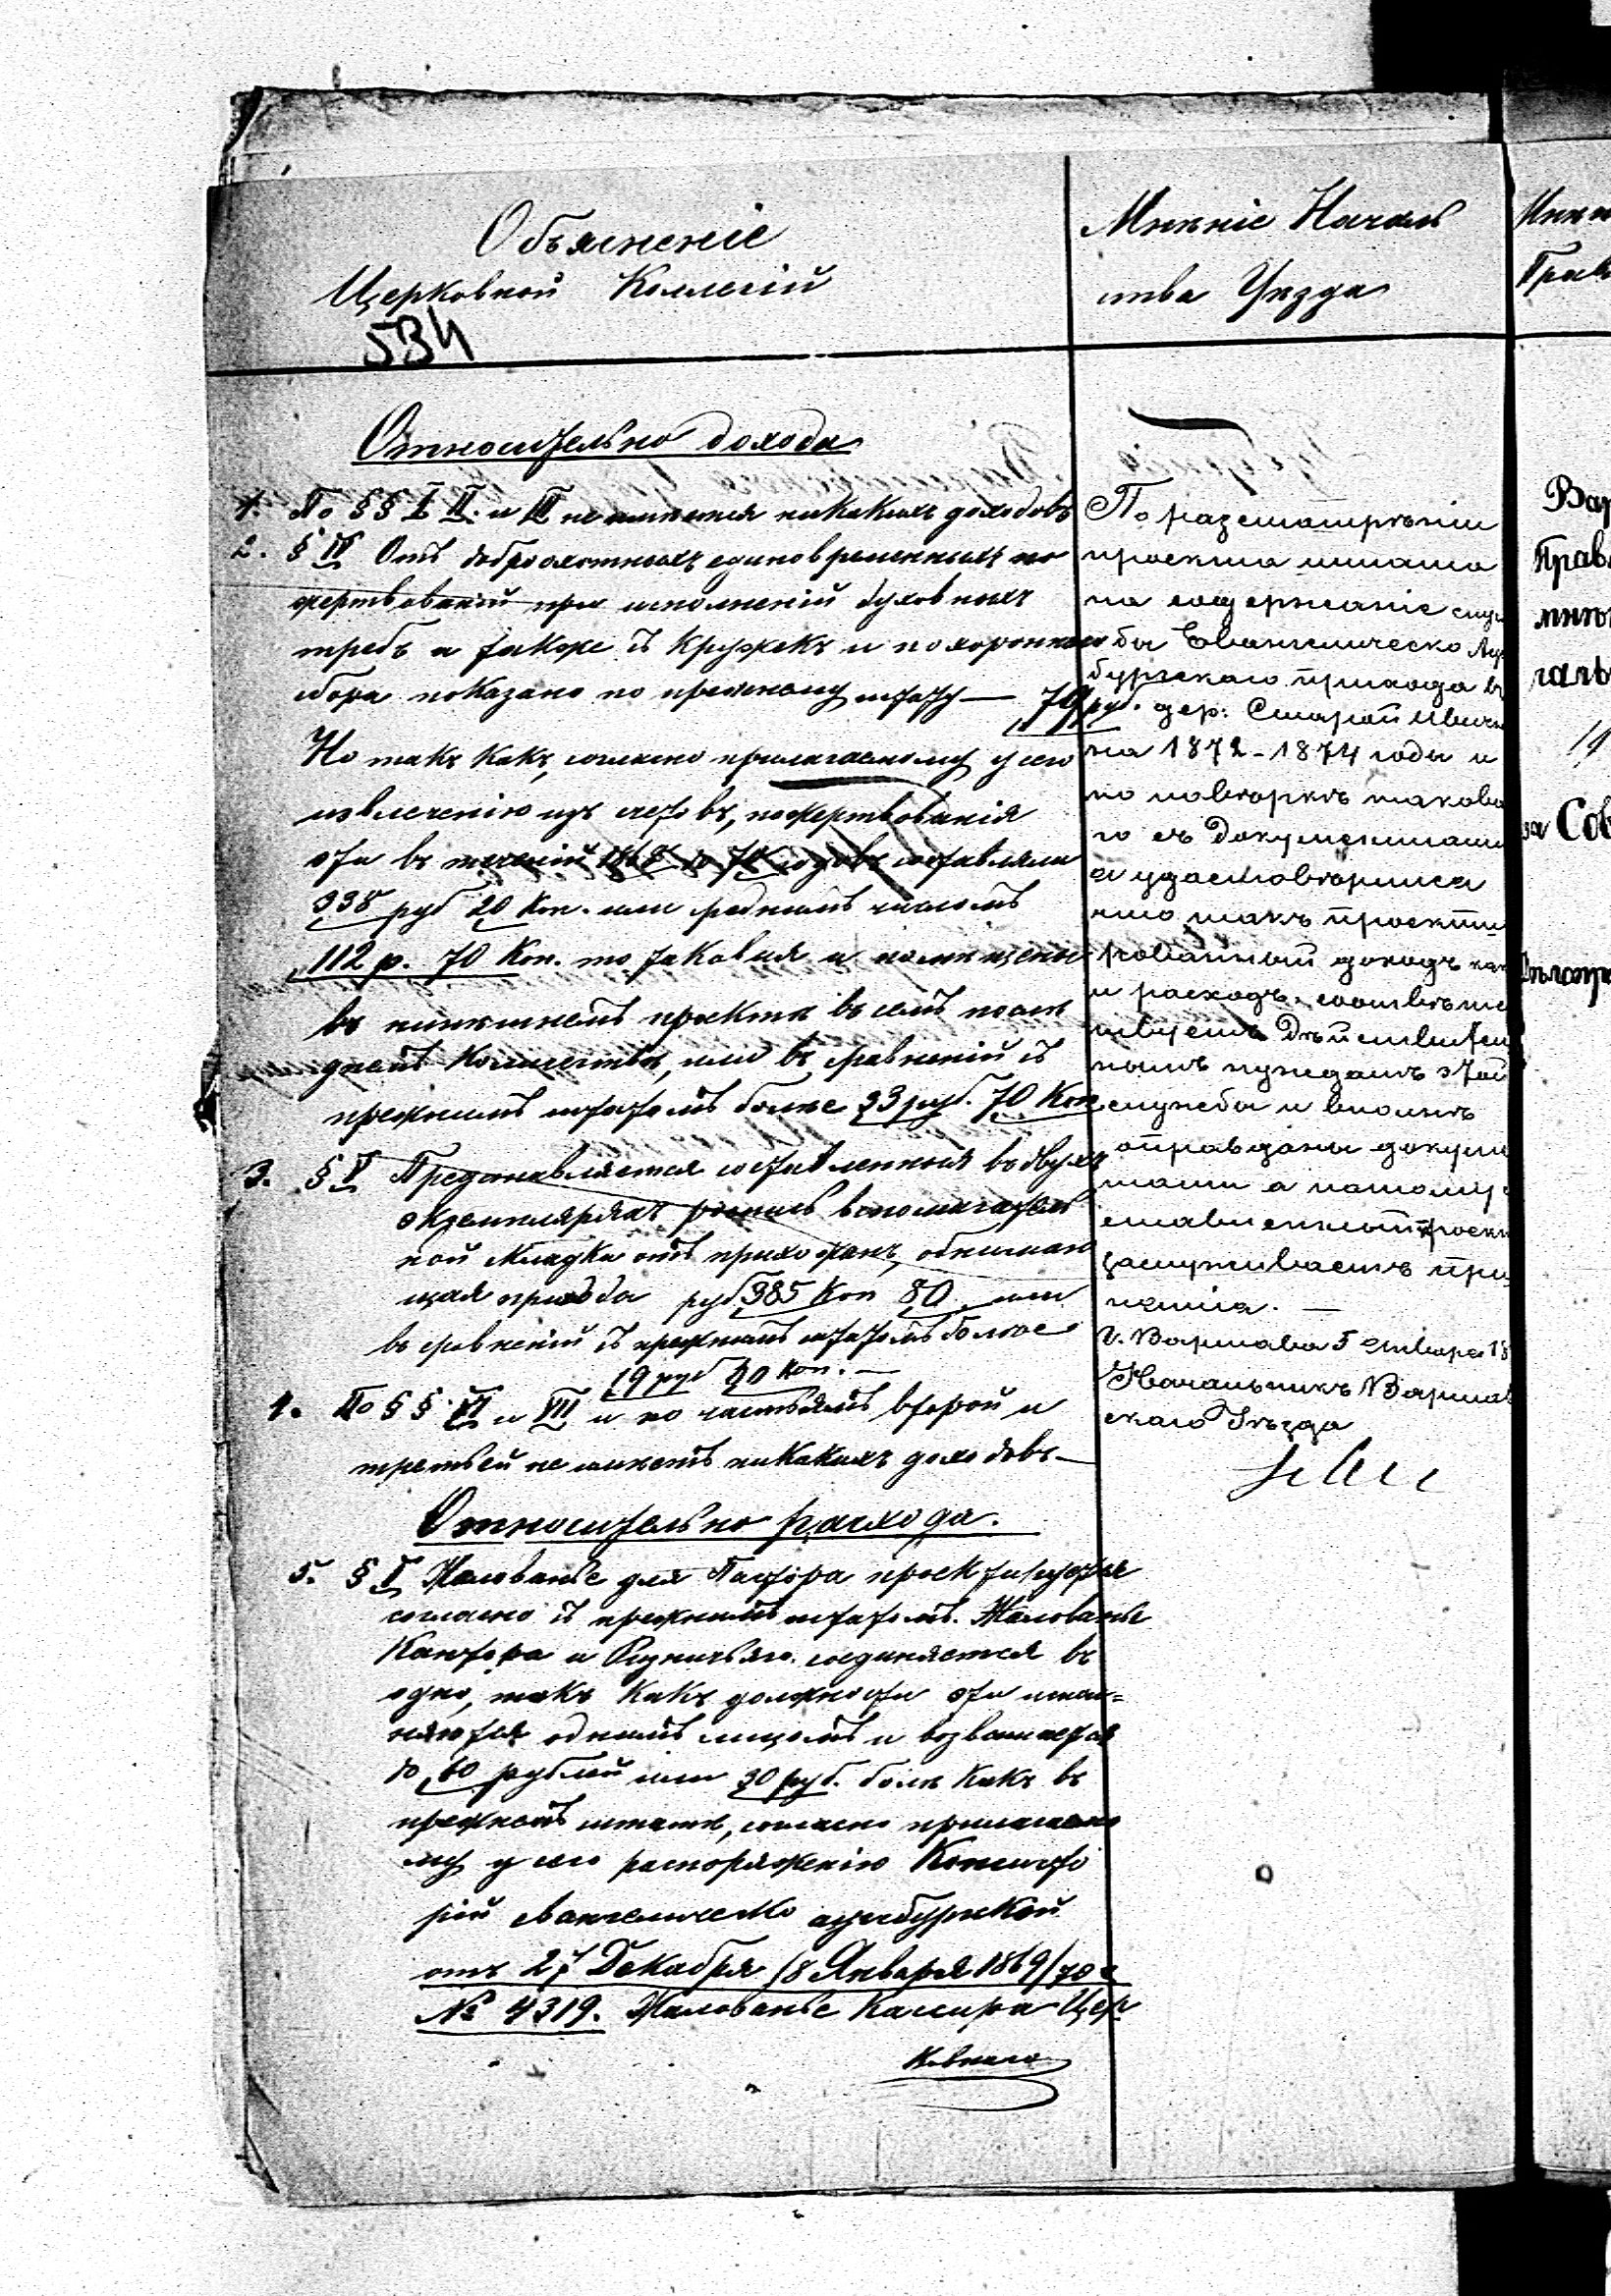 Объясненіе
Церковной Коллегій
534
Относительно дохода
1. По §§ I II. и III не имѣется никакихъ доходовъ
2. § IV Отъ доброхотныхъ единовременныхъ по
жертвованій при исполненій духовныхъ
требъ а также съ кружекъ и похоронного
сбора показано по прежнему штату — 79 руб.
Но такъ какъ, согласно прилагаемому у сего
извлеченію изъ счетовъ, пожертвованія
эти въ теченій 1868 до 70 годовъ составляли
338 руб 20 Коп. или среднимъ числомъ
112 р. 70 Коп. то таковыя и помѣщены
въ нынѣшнемъ проектѣ въ семъ послѣ
днемъ количествѣ, или въ сравненій съ
прежнимъ штатомъ болѣе 33 руб. 70 Коп
3. § V Предоставляется составленная въ двухъ
экземплярахъ роспись вспомогатель
ной складки отъ прихожанъ, обнимаю
щая прихода руб 385 Коп 80. или
въ сравненій съ прежнимъ штатомъ болѣе
19 руб 30 коп. —
4. По §§ VI и VII и по частямъ второй и
третьей не имѣетъ никакихъ доходовъ —
Относительно расхода.
5. § I Жалованье для Пастора проектируется
согласно съ прежнимъ штатомъ. Жалованье
Кантора и соединяется въ
одно, такъ какъ должности эти испол=
няются однимъ лицомъ и возвышается
до 60 рублей или 30 руб. болѣ какъ въ
прежнемъ штатѣ, согласно прилагаемо
му у сего распоряженію Консисто
рій евангелическо аугсбургской
отъ 27 Декабря /8 Января 1869/70 г
№ 4319. Жалованье Кассира Цер
ковнаго
Мнѣніе Началь
ства Уѣзда
По разсмотрѣніи
проекта штата
на содержаніе служ
бы Евангелическо Ауг
бургскаго прихода въ
дер: Старой Ивичн
на 1872-1874 годы и
по повѣркѣ таково
го съ документами
я удостовѣрился
что какъ проекти=
рованный доходъ какъ
и расходъ, соотвѣтс
твуетъ Дѣйствитель
нымъ нуждамъ этой
службы и вполнѣ
оправданы докуме
нтами а потому
ставленный проектъ
заслуживаетъ при
нятія. —
г. Варшава 5 Января 18
Начальникъ Варшав
скаго Уѣзда
Мнѣн
Прав
Вар
Прав
Сов